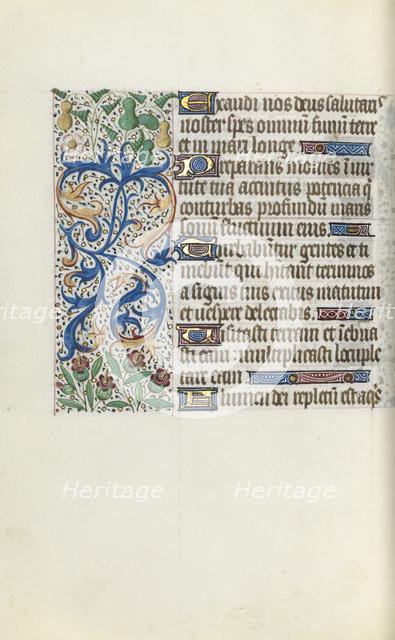 Exaudi nos deus salutaris
noster spes omniū finiū terre
et in mari longe.
Preparans montes ī uir
tute tua accintus potencia q̄
conturbas profundū maris
sonū fluctuum eius.
Turbabūtur gentes et ti
mebūt qui hītant terminos
a signis tuis exitus matutini
et uespere delectabis.
Uisitasti terram et īebria
sti eam multiplicasti locuple
tare eam
Flumen dei repletū est aq̄s
Heritage
Heritage
Heritage
Heritage